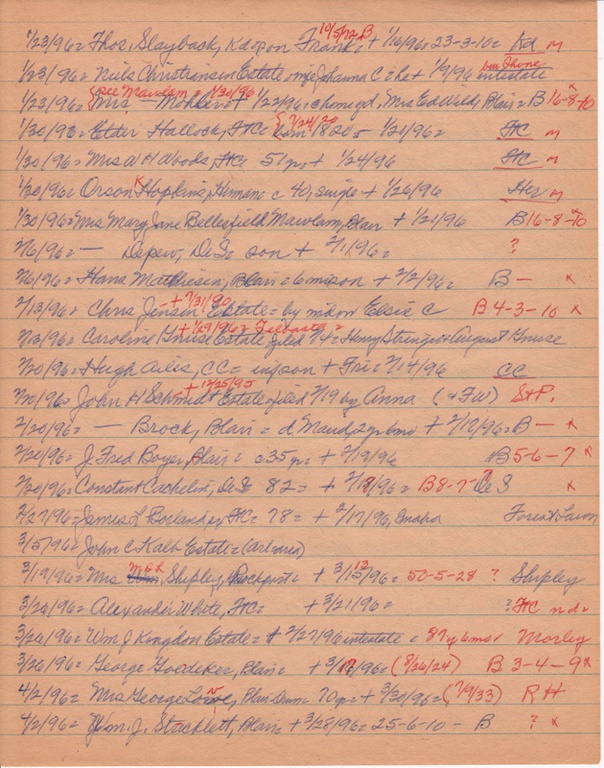 10/5/72 B
1/23/96= Thos. Slayback, Kd= son Frank= + 1/16/96= 23-3-10= Kd m
1/23/96= Niels Christensen Estate= wife Johanna C = he + 1/9/96 intestate
(see Mawlam 1/30/96)
1/23/96= Mrs — Mohler= + 1/22/96, Mrs Ed Wild, Blair= B 16-8-10 x
(7/24/20
1/30/96= Elder Hallock, HC= born 1820= 1/21/96= HC m
1/30/96= Mrs W H Woods, HC= 51 yr= + 1/24/96 HC m
1/30/96= Orson Hopkins, Herman c 40, single + 1/26/96 Her m
1/30/96= Mrs Mary Jane Bellesfield Mawlam, Blair + 1/21/96 B 16-8-10 x
2/6/96= — Depew, DeS= son + 2/1/96= ?
2/6/96= Hans Mathiesen, Blair= 6 m= son + 2/2/96= B — x
+ 7/31/90
2/13/96= Chris Jensen Estate= by widow Elsie C B 4-3-10 x
+ 1/29/96= Tekamah=
2/13/96= Caroline Kruse Estate filed 2/4= Henry Stringer & August Kruse
2/20/96= Hugh Aites, CC= inf son + Fri= 2/14/96 CC
+ 12/25/95
2/20/96= John H Schmidt Estate= filed 2/19 by Anna (& FW) S&P.
2/20/96= — Brock, Blair= d Maud, 2 yr 6 mo + 2/12/96= B — x
2/20/96= J. Fred Boyer, Blair= c 35 yr= + 2/19/96 B 5-6-7 x
2/20/96= Constant Cachelin, DeS= 82= + 2/18/96= B 8-7-7 De S x
2/27/96= James L Borlander, HC= 78= + 2/17/96, Omaha Forest Lawn
3/5/96= John C Kalb Estate= (Arizona)
3/19/96= Mrs M & H Shipley, Rockport= + 3/13/96= 50-5-28 ? Shipley
3/26/96= Alexander White, HC= + 3/21/96= ? HC n.d.
3/26/96= Wm J Kingdon Estate= + 2/27/96 intestate = 87 y 6 mo Morley
3/26/96= George Goedeker, Blair= + 3/17/96= (8/26/24) B 3-4-9 x
4/2/96= Mrs George Lowe, Blair Dunn= 70 yr= + 3/30/96= (7/9/33) R H
4/2/96= Wm. J. Stacklett, Blair= + 3/28/96= 25-6-10 — B ? x